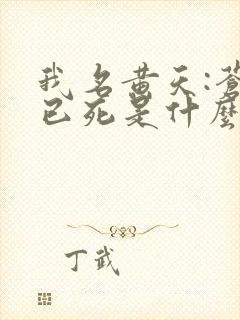 我名黄天:苍
已死是什麼
丁武